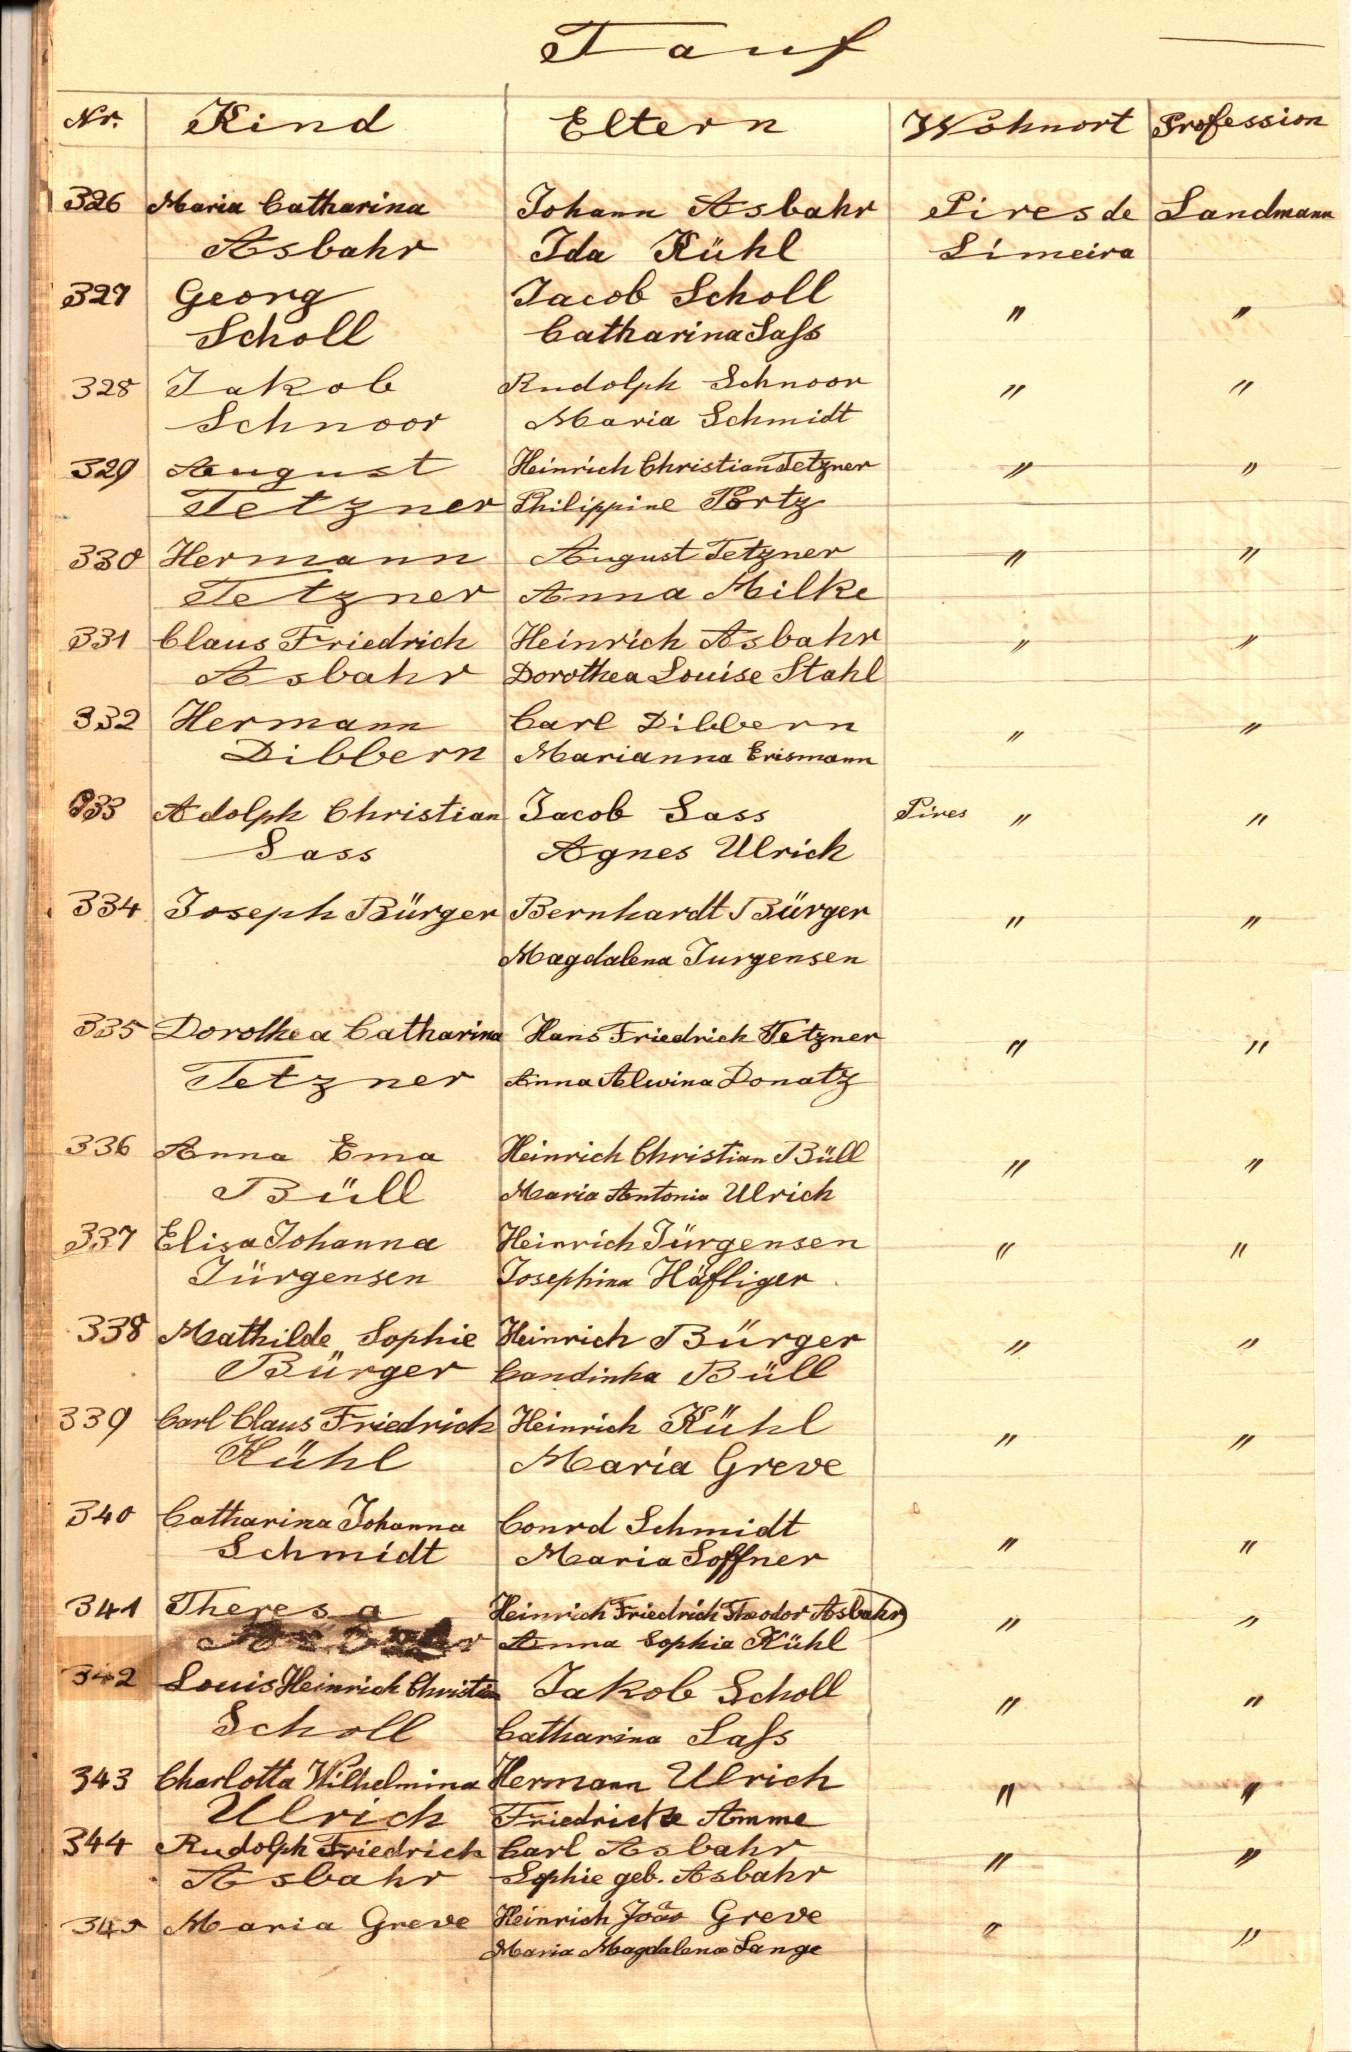 Tauf
Nr. Kind Eltern Wohnort Profession
326 Maria Catharina Johann Asbahr Pires de Landmann
Asbahr Ida Kühl Limeira
327 Georg Jacob Scholl " "
Scholl Catharina Saſs
328 Jakob Rudolph Schnoor " "
Schnoor Maria Schmidt
329 August Heinrich Christian Tetzner " "
Tetzner Philippine Portz
330 Hermann August Tetzner " "
Tetzner Anna Milke
331 Claus Friedrich Heinrich Asbahr " "
Asbahr Dorothea Louise Stahl
332 Hermann Carl Dibbern " "
Dibbern Marianna Erismann
333 Adolph Christian Jacob Sass Pires " "
Sass Agnes Ulrich
334 Joseph Bürger Bernhardt Bürger " "
Magdalena Jurgensen
335 Dorothea Catharina Hans Friedrich Tetzner " "
Tetzner Anna Alwina Donatz
336 Anna Ema Heinrich Christian Büll " "
Büll Maria Antonia Ulrich
337 Elisa Johanna Heinrich Jürgensen " "
Jürgensen Josephina Häfliger
338 Mathilde Sophie Heinrich Bürger " "
Bürger Candinha Büll
339 Carl Claus Friedrich Heinrich Kühl " "
Kühl Maria Greve
340 Catharina Johanna Conrd Schmidt " "
Schmidt Maria Soffner
341 Theresa Heinrich Friedrich Theodor Asbahr " "
Anna Sophia Kühl
342 Louis Heinrich Christian Jakob Scholl " "
Scholl Catharina Saſs
343 Charlotta Wilhelmina Hermann Ulrich " "
Ulrich Friedricke Amme
344 Rudolph Friedrich Carl Asbahr " "
Asbahr Sophie geb. Asbahr
345 Maria Greve Heinrich João Greve " "
Maria Magdalena Lange